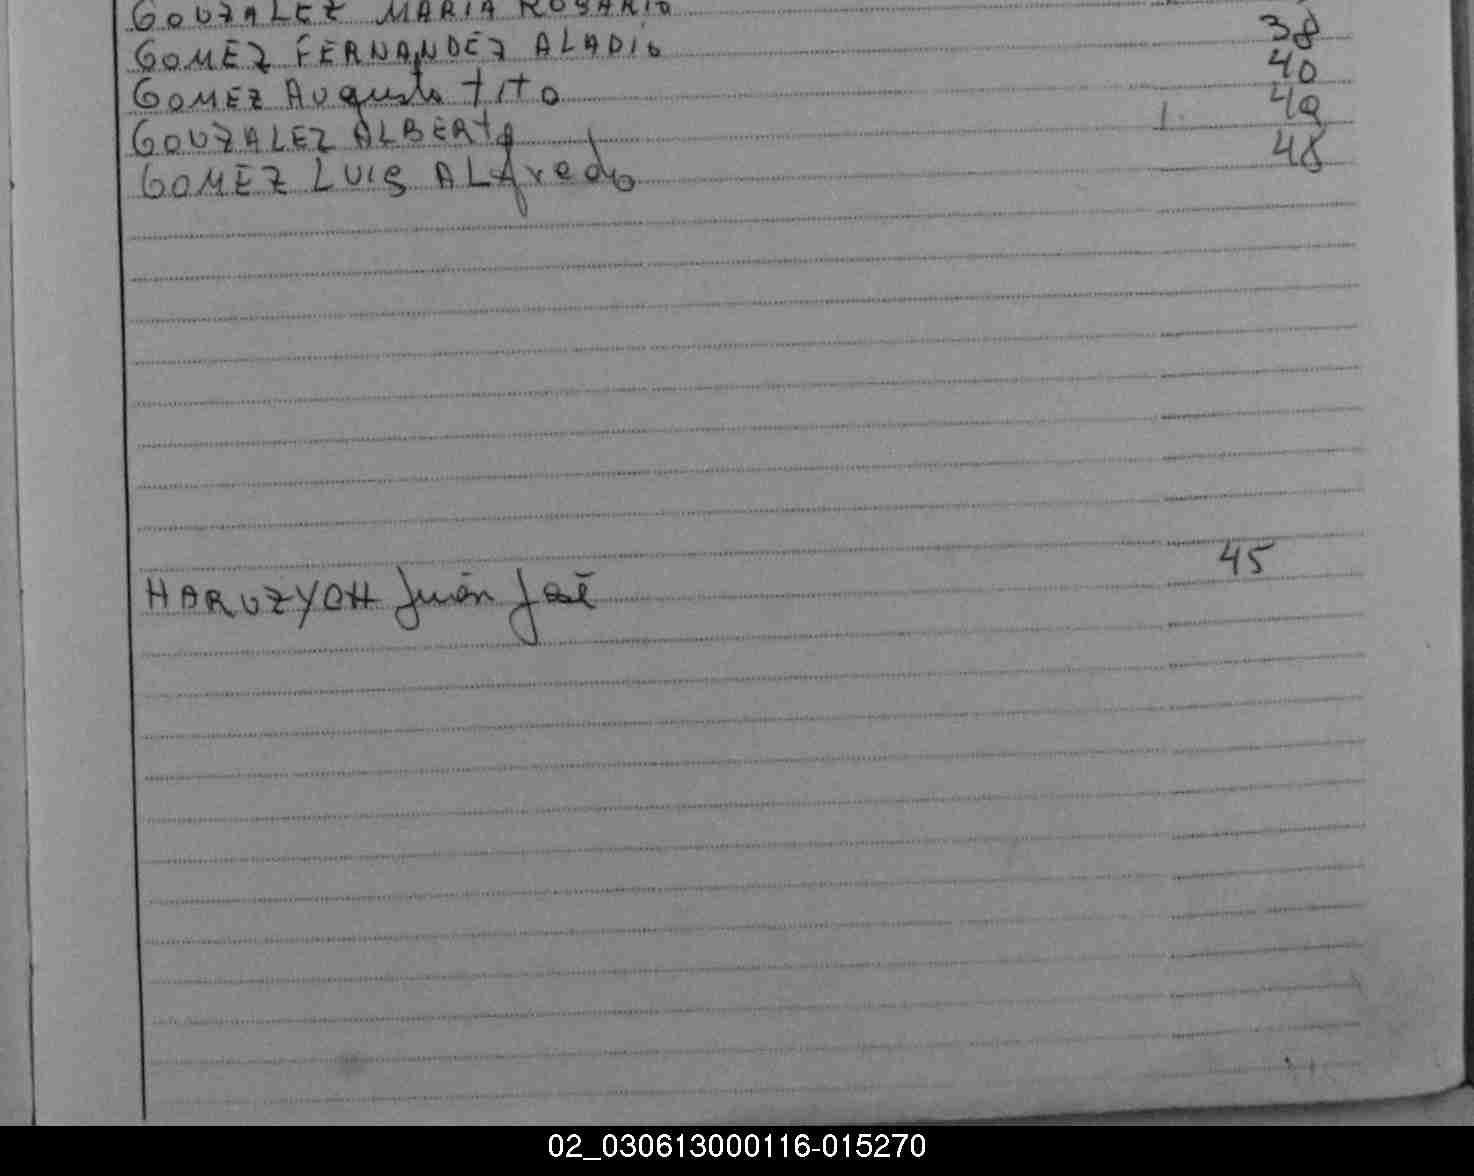 GONZALEZ MARIA ROSARIO
GOMEZ FERNANDEZ ALADIO 38
GOMEZ Augusto TITO 40
GONZALEZ ALBERTO 1. 49
GOMEZ LUIS ALFredo 48
HARUZYCH Juan José 45
02_030613000116-015270